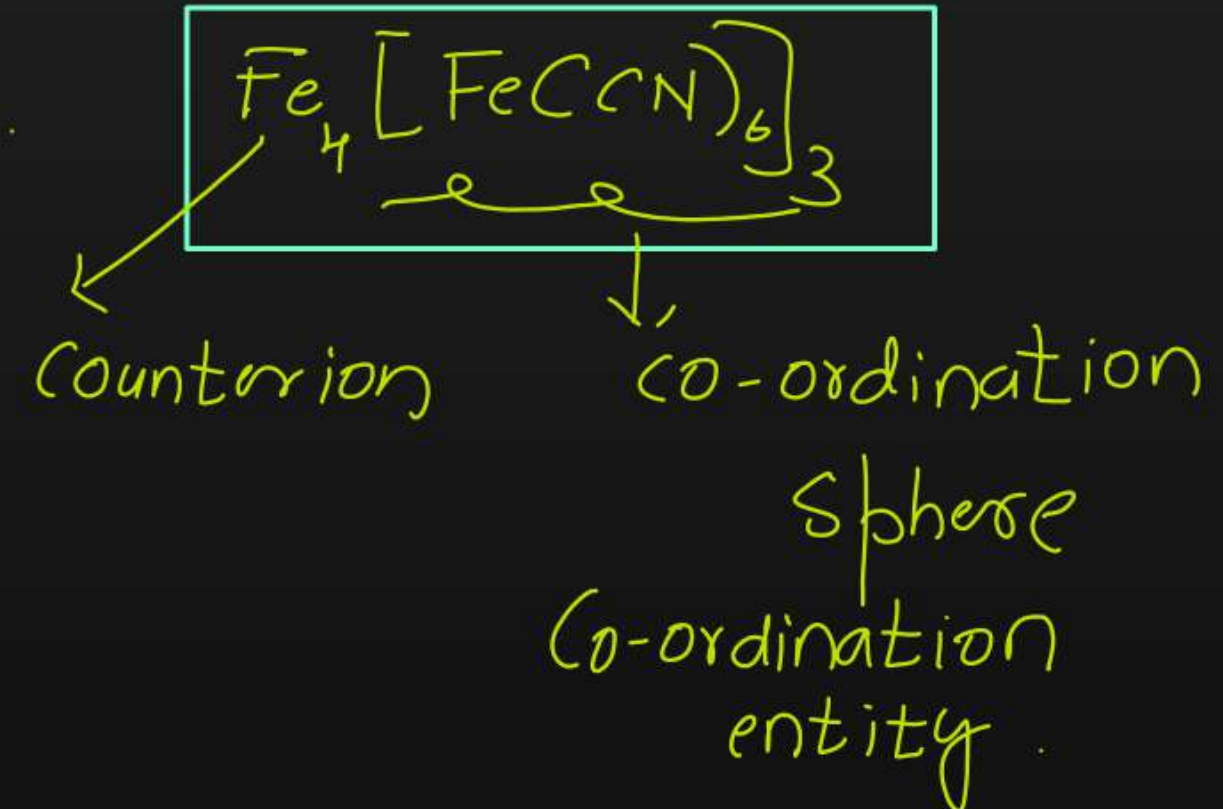 Fe₄[Fe(CN)₆]₃
Counterion co-ordination
Sphere
Co-ordination
entity.